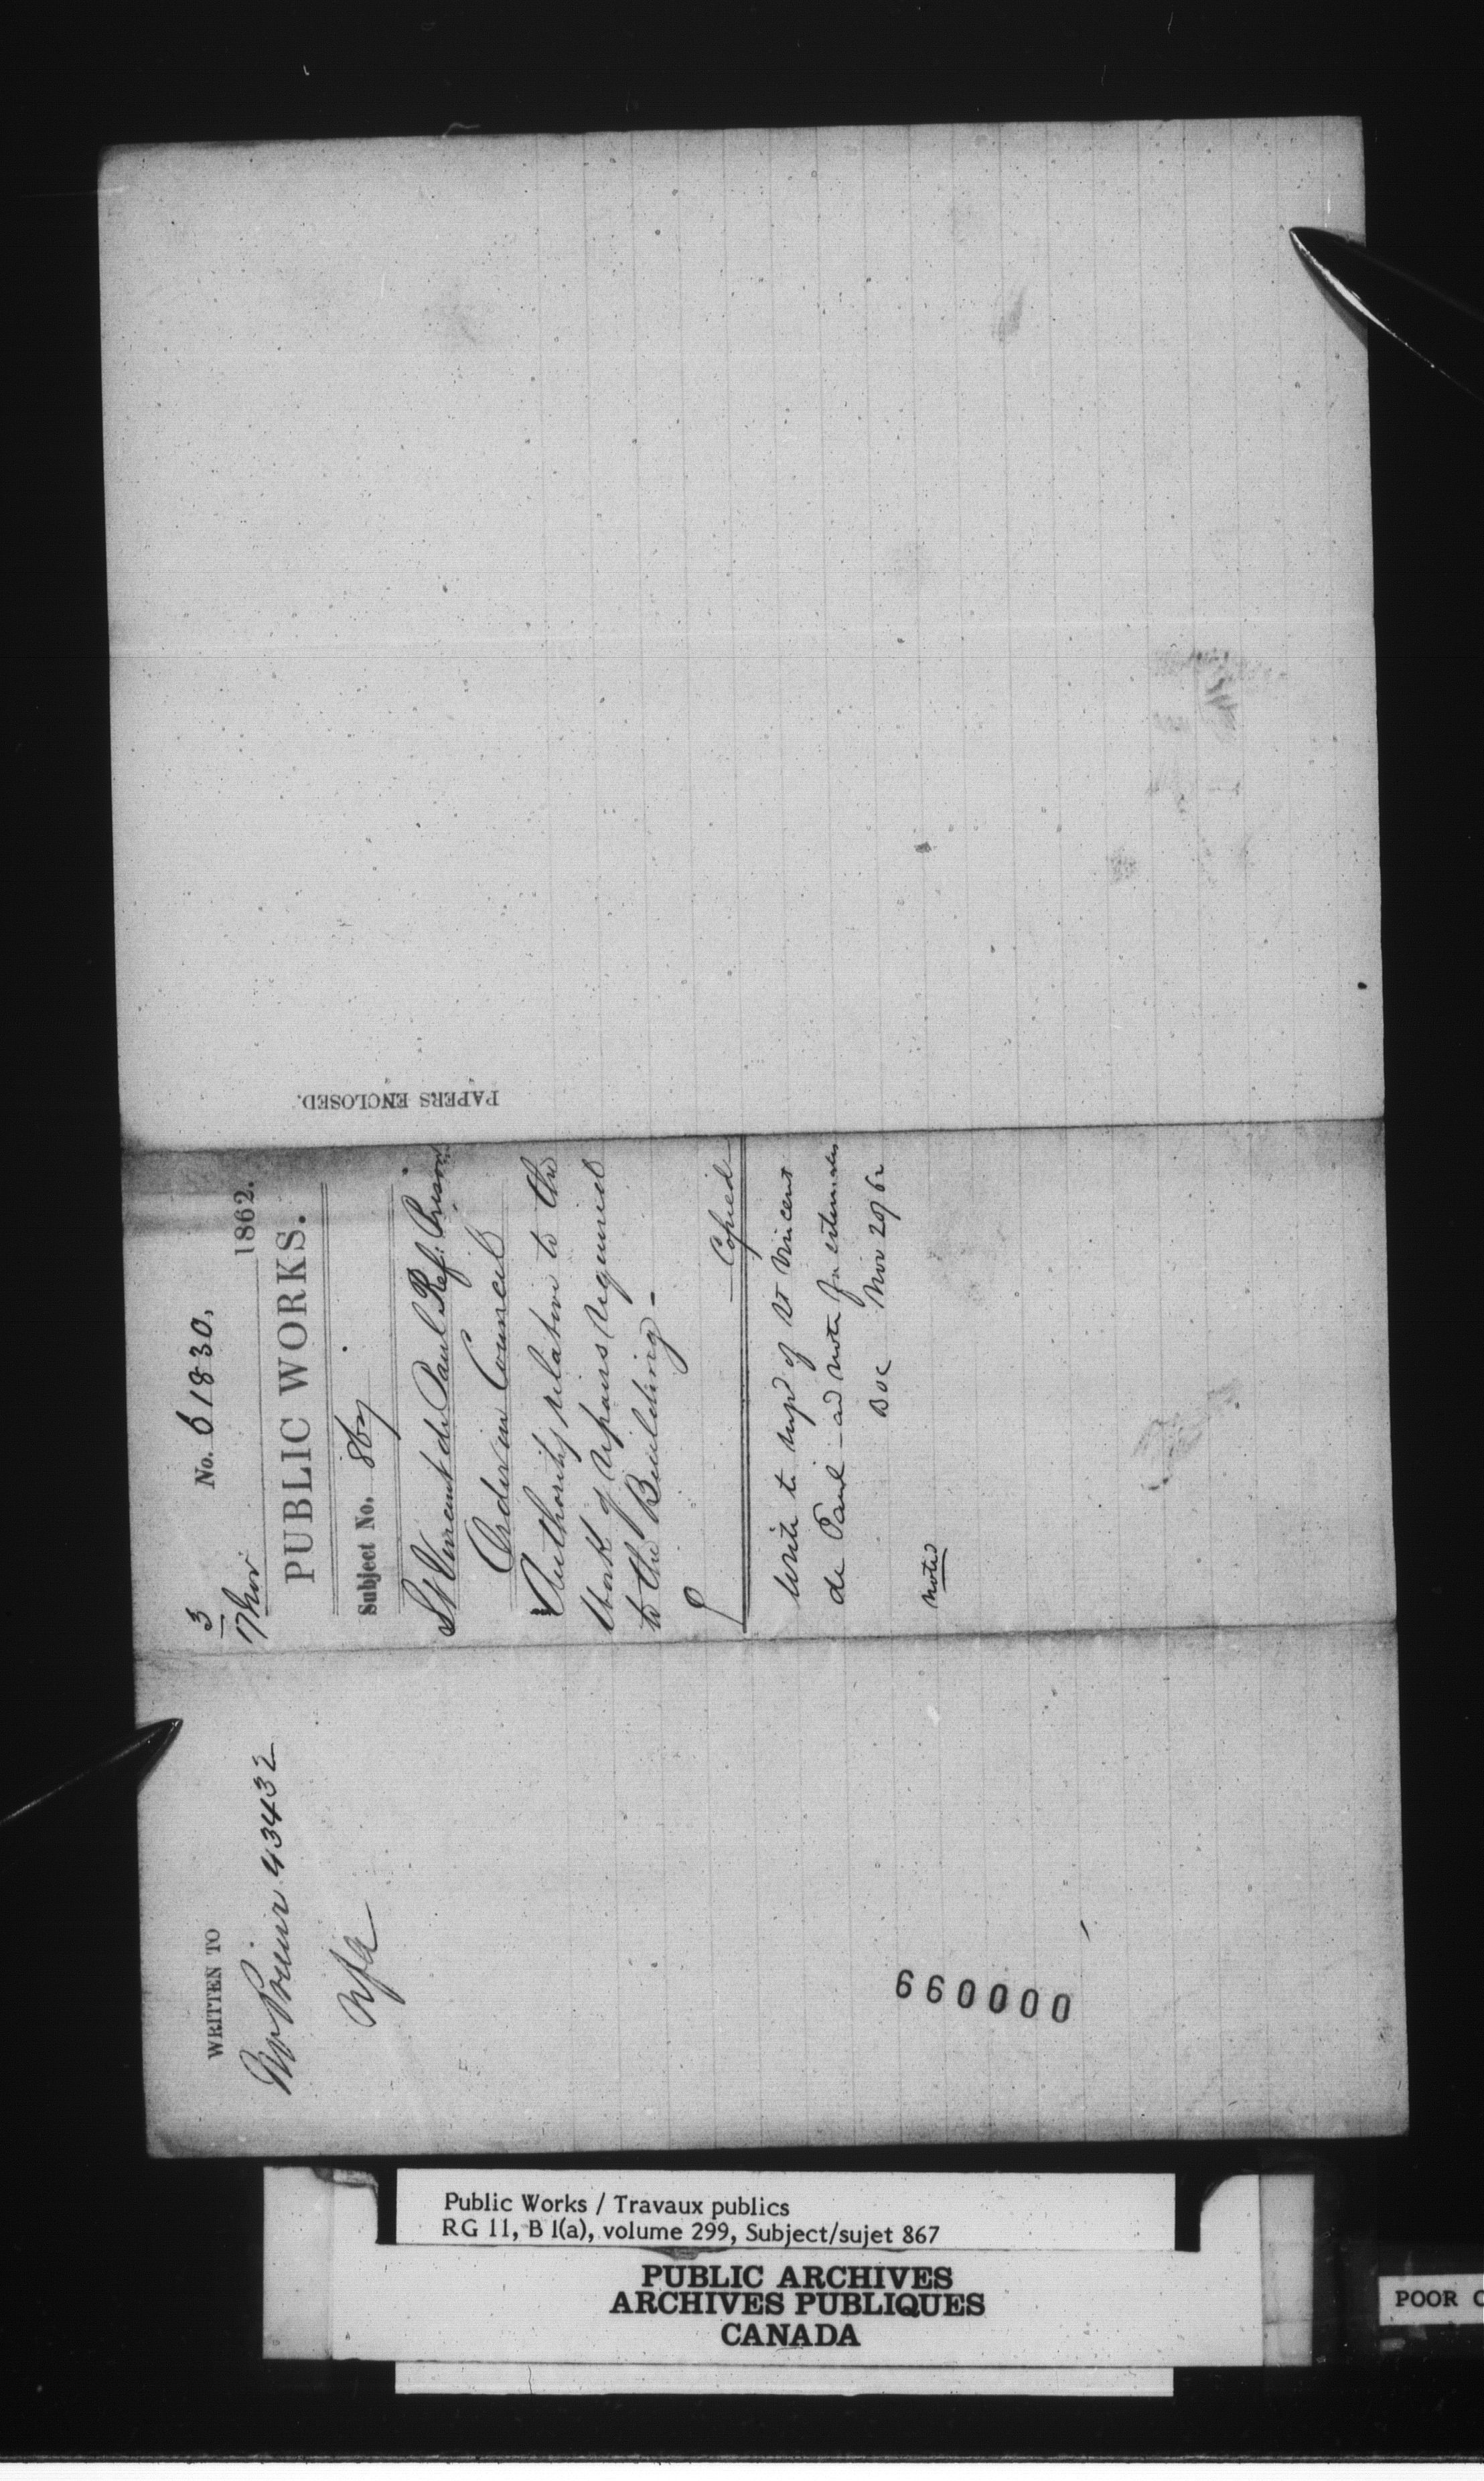 PAPERS ENCLOSED.
3
17 Nov
No. 61830.
1862.
PUBLIC WORKS.
Subject No. 867
St Vincent de Paul Ref. Prison
Order in Council
Authority relative to the
Work of repairs required
to the Building -
Copied
Write to supd of St Vincent
de Paul - and note for estimates
Nov 29 62
noted
WRITTEN TO
43432
660000
Public Works / Travaux publics
RG 11, B 1(a), volume 299, Subject/sujet 867
PUBLIC ARCHIVES
ARCHIVES PUBLIQUES
CANADA
POOR